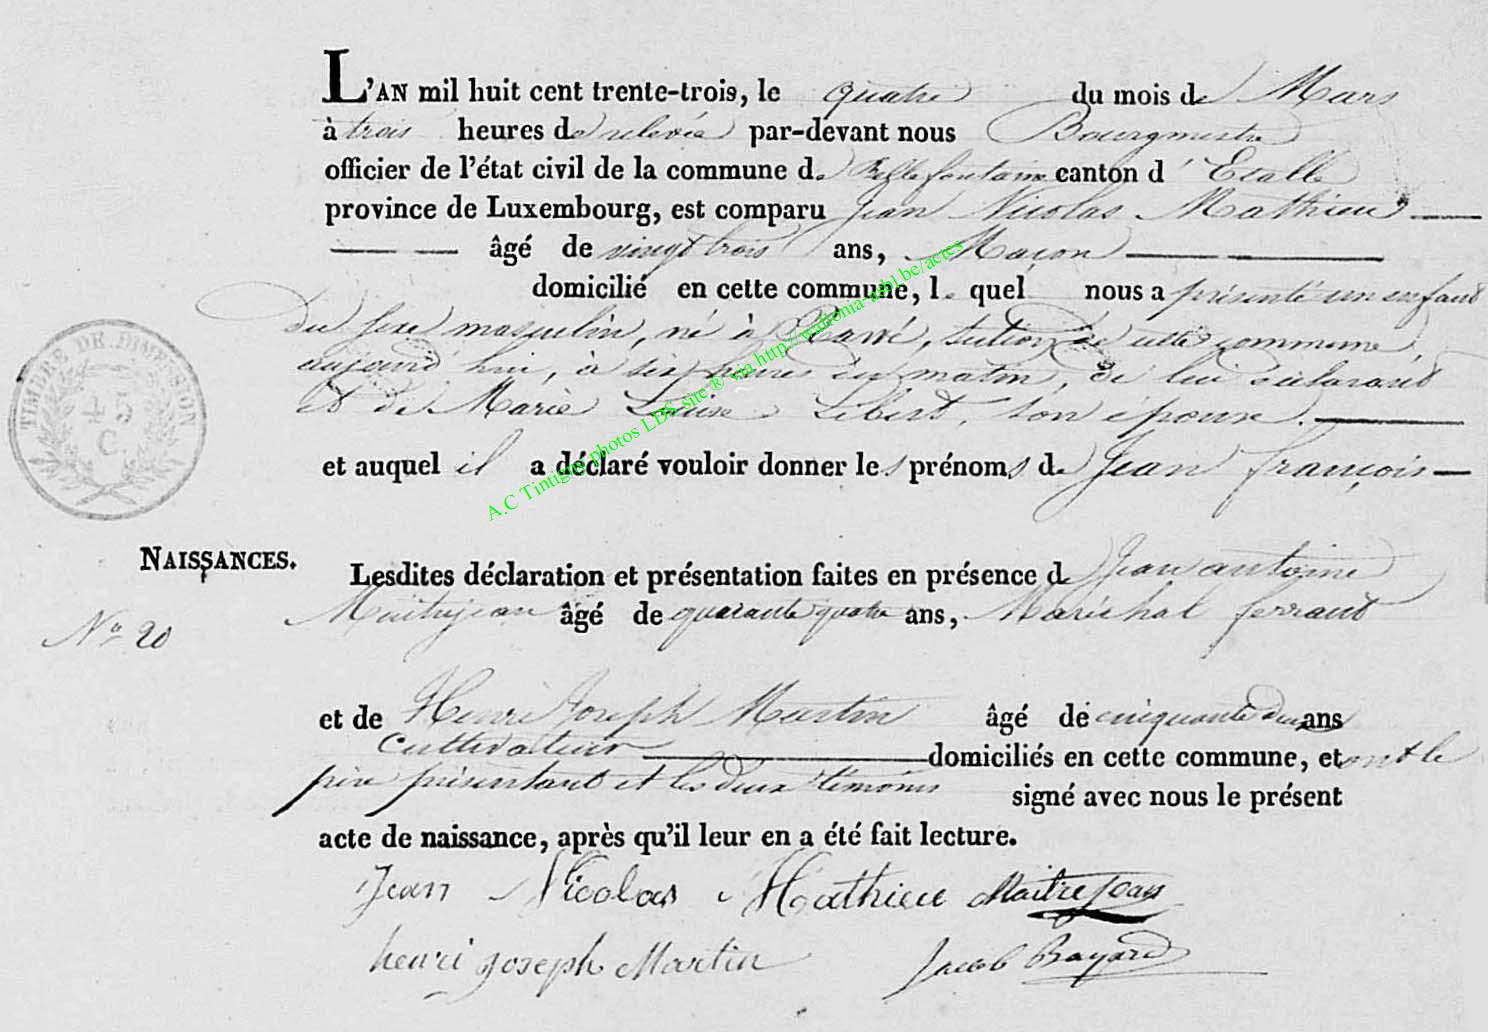 L'AN mil huit cent trente-trois, le quatre du mois de Mars
à trois heures de relevée par-devant nous Bourgmestre
officier de l'état civil de la commune de Bellefontaine canton d' Etalle
province de Luxembourg, est comparu Jean Nicolas Mathieu
âgé de vingt trois ans, Maçon
domicilié en cette commune, le quel nous a présenté un enfant
du sexe masculin, né à section de cette commune,
aujourd'hui, à six heures du matin, de lui déclarant
et de Marie Louise Libert, son épouse.
et auquel il a déclaré vouloir donner les prénoms de Jean françois
TIMBRE DE DIMENSION
45
C.
NAISSANCES.
No 20
Lesdites déclaration et présentation faites en présence de Jean antoine
Maitrejean âgé de quarante quatre ans, Maréchal ferrant
et de Henri Joseph Martin âgé de cinquante deux ans
Cultivateur domiciliés en cette commune, et ont le
père présentant et les deux témoins signé avec nous le présent
acte de naissance, après qu'il leur en a été fait lecture.
Jean Nicolas Mathieu Maitrejean
henri joseph Martin Jacob Bayard
A.C Tintigny photos LDS site ® via http://wallonia-asbl.be/actes